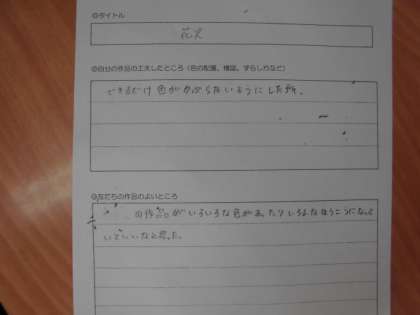 ◎タイトル
花火
◎自分の作品の工夫したところ（色の配置、構図、ずらしかなど）
できるだけ色がかぶらないようにした所。
◎友だちの作品のよいところ
の作品がいろいろな色があったりいろんなほうこうになって
いていいなと思った。